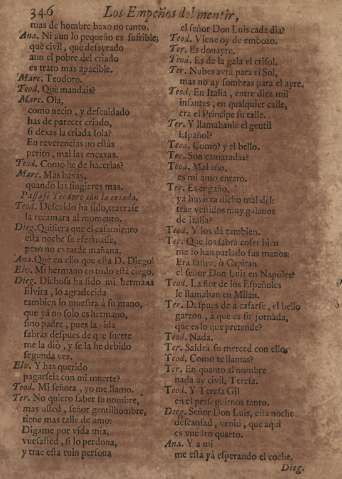 346 Los Empeños del mentir,
mas de hombre baxo no tanto.
Ana. Ni aun lo pequeño es sufrible;
que civil, que desayrado
aun el pobre del criado
es trato mas apacible.
Marc. Teodoro.
Teod. Que mandais?
Marc. Ola,
como necio, y descuidado
has de parecer criado,
si dexas la criada sola?
En reverencias no estás
perito, mal las encaxas.
Teod. Como he de hacerlas?
Marc. Mas baxas,
quando las fingieres mas.
Passase Teodoro con la criada.
Teod. Descuido ha sido,
la recamara al momento.
Dieg. Quisiera que el casamiento
esta noche se efectuasse,
pero no es tarde mañana.
Ana. Que en esso que está D. Diego?
Elv. Mi hermano en todo esté ciego.
Dieg. Dichosa ha sido mi hermana
Elvira, lo agradecida
tambien lo muestra á su mano,
que yá no solo es hermano,
sino padre, pues la vida
sabras despues de que suerte
me la dio, y se la he debido
segunda vez.
Elv. Y has querido
pagarsela con mi muerte?
Teod. Mi señora, yo me llamo.
Ter. No quiero saber tu nombre,
mas usted, señor gentilhombre,
tiene mas talle de amo.
Digame por vida mia,
vuesasted, si lo perdona,
y trae esta ruin persona
el señor Don Luis cada dia?
Teod. Viene oy de embozo.
Ter. Es donayre.
Teod. Es de la gala el crisol.
Ter. Nubes avrá para el Sol,
mas no ay sombras para el ayre.
Teod. En Italia, entre diez mil
infantes, en qualquier calle,
era el Principe su talle.
Ter. Y llamabanle el gentil
Español?
Teod. Como? y el bello.
Ter. Son camaradas?
Teod. Mal año,
es mi amo entero.
Ter. Es engaño,
ya havian dicho mal dél:
trae vestidos muy galanos
de Italia?
Teod. Y los dá tambien.
Ter. Que los sabrá coser bien
quien los ha parlado sus manos:
Era Alferez, ó Capitan
el señor Don Luis en Napoles?
Teod. La flor de los Españoles
le llamaban en Milan.
Ter. Despues de á casarse, el bello
garzon, á qué es su jornada,
que es lo que pretende?
Teod. Nada.
Ter. Saldrá su merced con ello.
Teod. Como te llamas?
Ter. En quanto al nombre
nada ay civil, Teresa.
Teod. Y á Teresa Gil
en persiguieron tanto.
Dieg. Señor Don Luis, esta noche
descansad, venid, que aqui
es vuestro quarto.
Ana. Y a mi
me está yá esperando el coche.
Dieg.